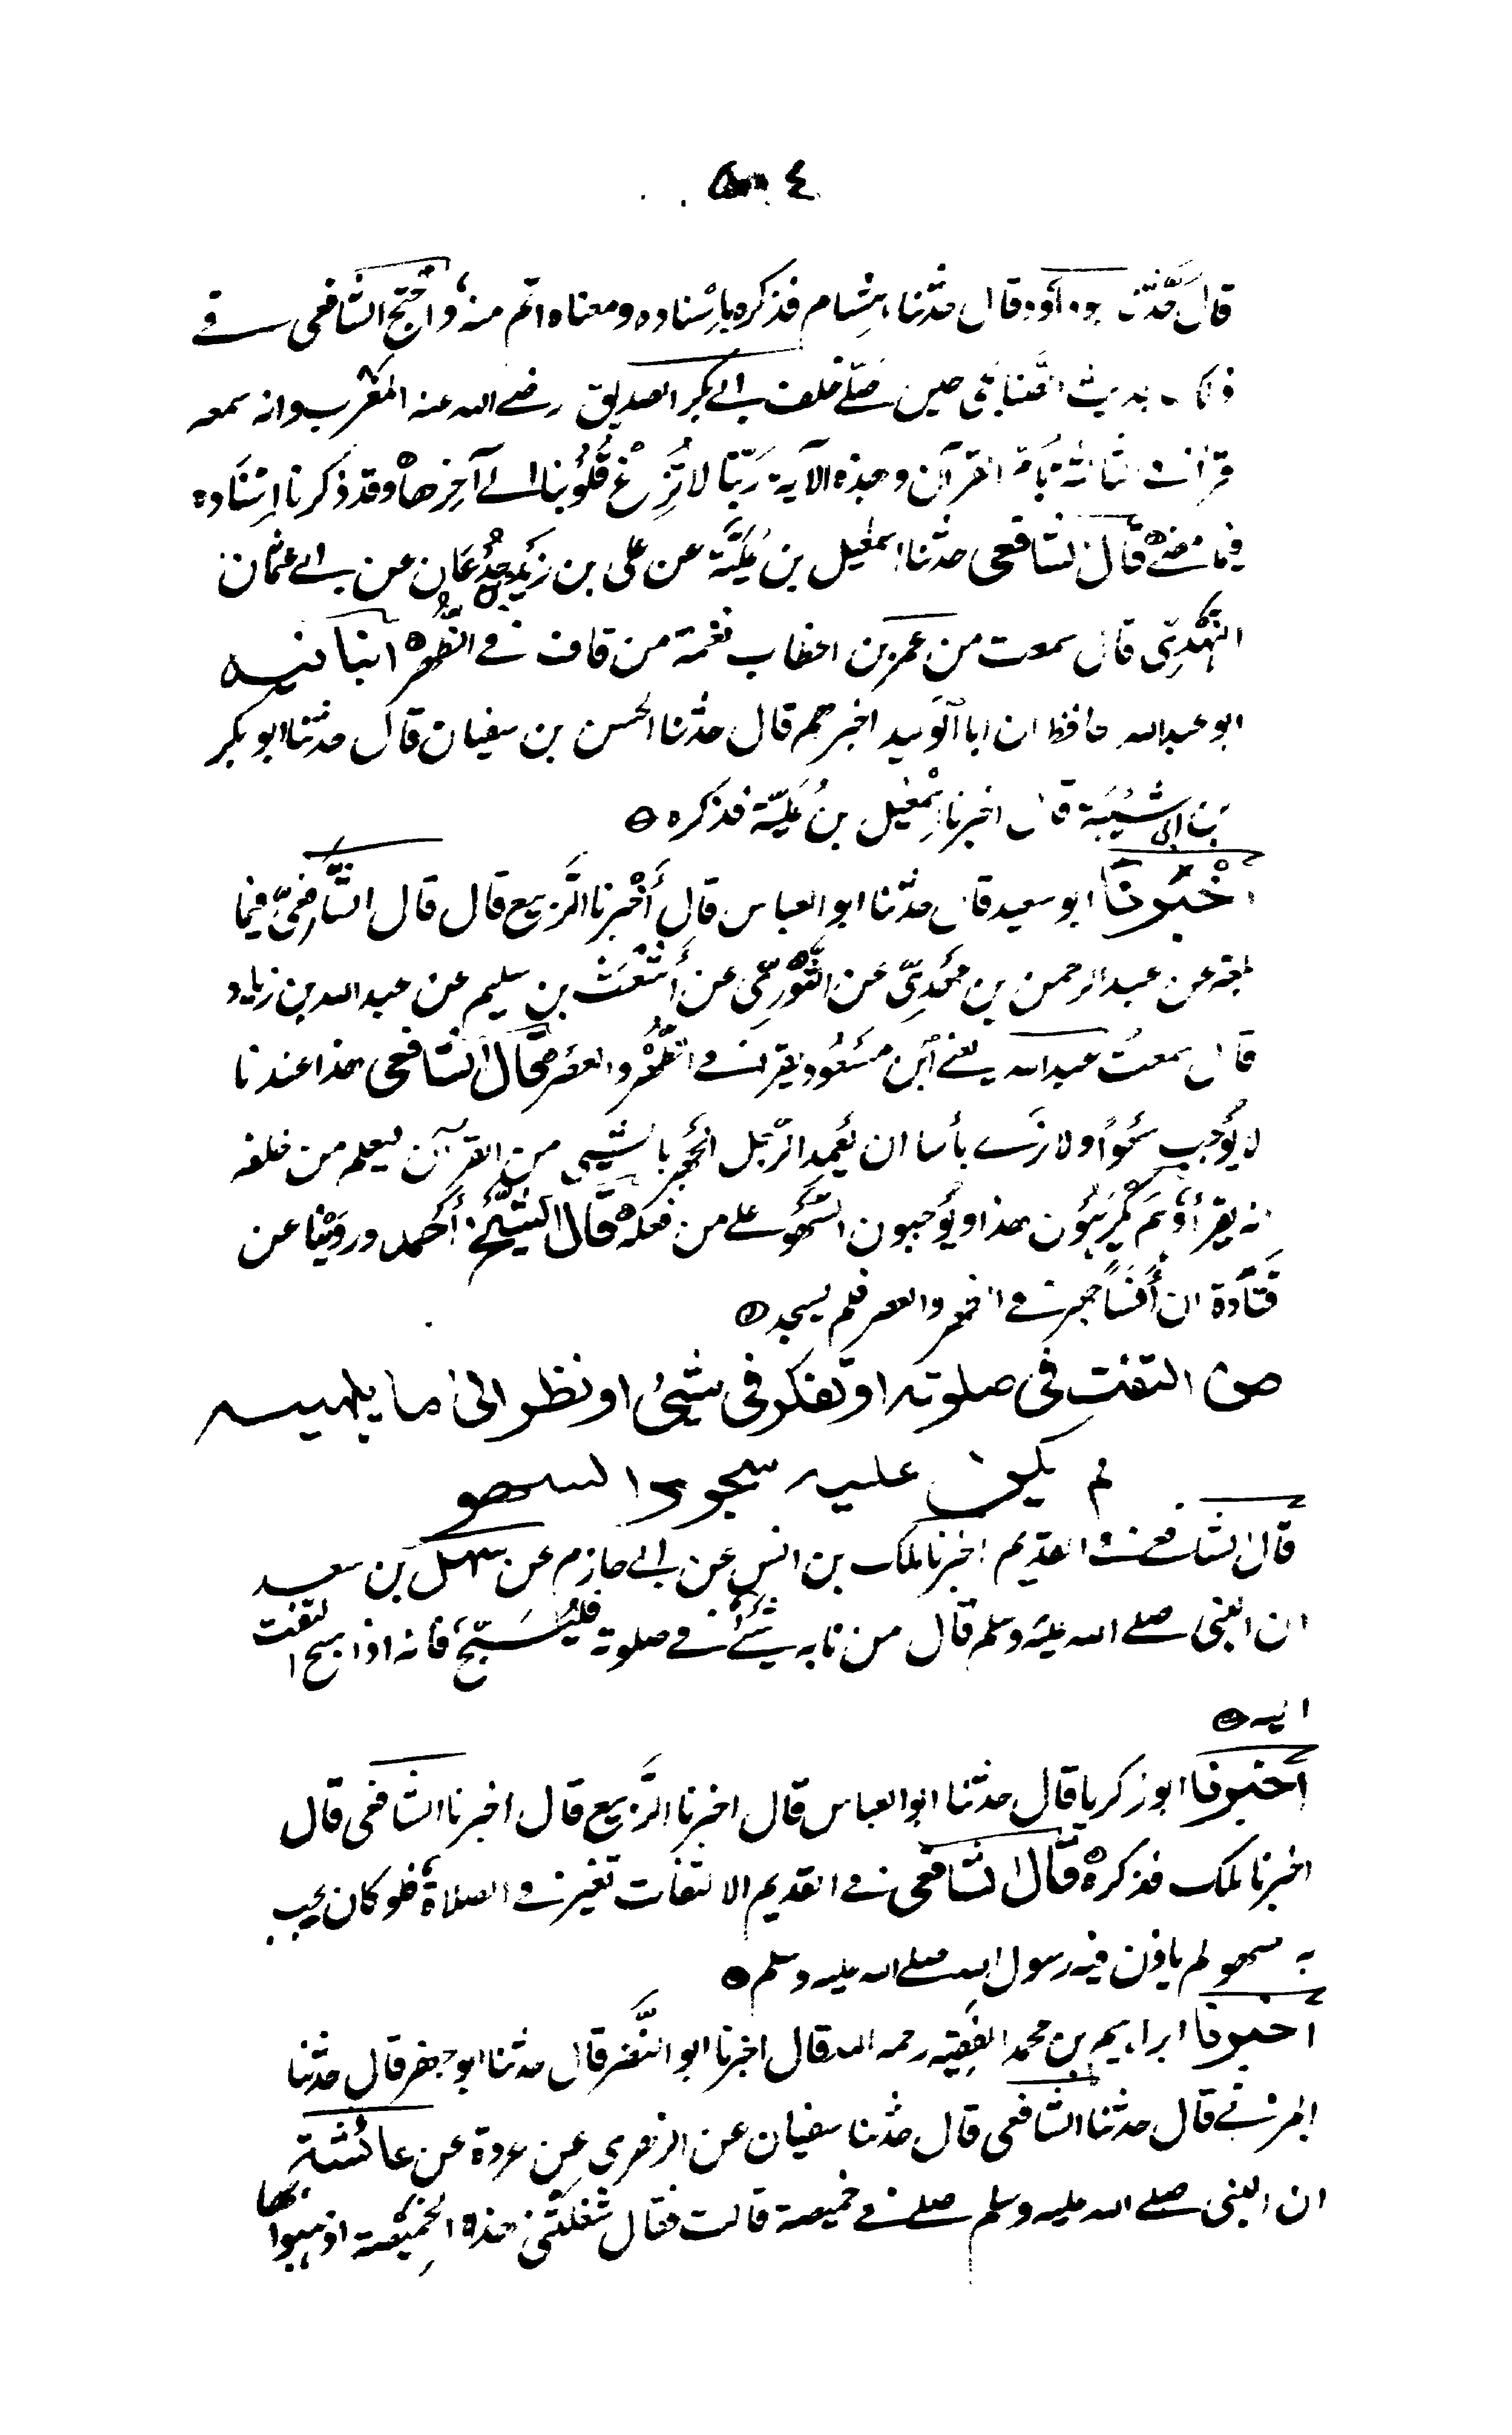 ٥٠٤
قال حدثنا ابو داود قال حدثنا هشام فذكره باسناده ومعناه اتم منه واحتج الشافعي في
ذلك بحديث الصنابحي حين صلى خلف ابي بكر الصديق رضي الله عنه المغرب وانه سمعه
قرأ في الثالثة بأم القرآن وهذه الآية ربنا لا تزغ قلوبنا الى آخرها وقد ذكرنا اسناده
فيما مضى قال الشافعي حدثنا اسمعيل بن علية عن علي بن زيد بن جدعان عن ابي عثمان
النهدي قال سمعت من عمر بن الخطاب نغمة من قاف في الظهر انبأنيه
ابو عبد الله الحافظ ان ابا الوليد اخبرهم قال حدثنا الحسن بن سفيان قال حدثنا ابو بكر
بن ابي شيبة قال اخبرنا اسمعيل بن علية فذكره
أخبرنا ابو سعيد قال حدثنا ابو العباس قال أخبرنا الربيع قال قال الشافعي فيما
بلغه عن عبد الرحمن بن مهدي عن الثوري عن أشعث بن سليم عن عبد الله بن زياد
قال سمعت عبد الله يعني ابن مسعود يقرأ في الظهر والعصر قال الشافعي هذا عندنا
لا يوجب سهوا ولا نرى بأسا ان يعمد الرجل الجهر بالشيء من القرآن ليعلم من خلفه
انه يقرأ وهم يكرهون هذا ويوجبون السهو على من فعله قال الشيخ أحمد وروينا عن
قتادة ان أنسا جهر في الظهر والعصر فلم يسجد
من التفت في صلوته او تفكر في شيء او نظر الى ما يلهيه
لم يكن عليه سجود السهو
قال الشافعي في القديم اخبرنا ملك بن انس عن ابي حازم عن سهل بن سعيد
ان النبي صلى الله عليه وسلم قال من نابه شيء في صلوته فليسبح فانه اذا سبح التفت
اليه
أخبرنا ابو زكريا قال حدثنا ابو العباس قال اخبرنا الربيع قال اخبرنا الشافعي قال
اخبرنا ملك فذكره قال الشافعي في القديم الالتفات تغير في الصلاة فلو كان يجب
به سهو لم ياذن فيه رسول الله صلى الله عليه وسلم
أخبرنا ابراهيم بن محمد الفقيه رحمه الله قال اخبرنا ابو النضر قال حدثنا ابو جعفر قال حدثنا
المزني قال حدثنا الشافعي قال حدثنا سفيان عن الزهري عن عروة عن عائشة
ان النبي صلى الله عليه وسلم صلى في خميصة قالت فقال شغلتني هذه الخميصة اذهبوا بها